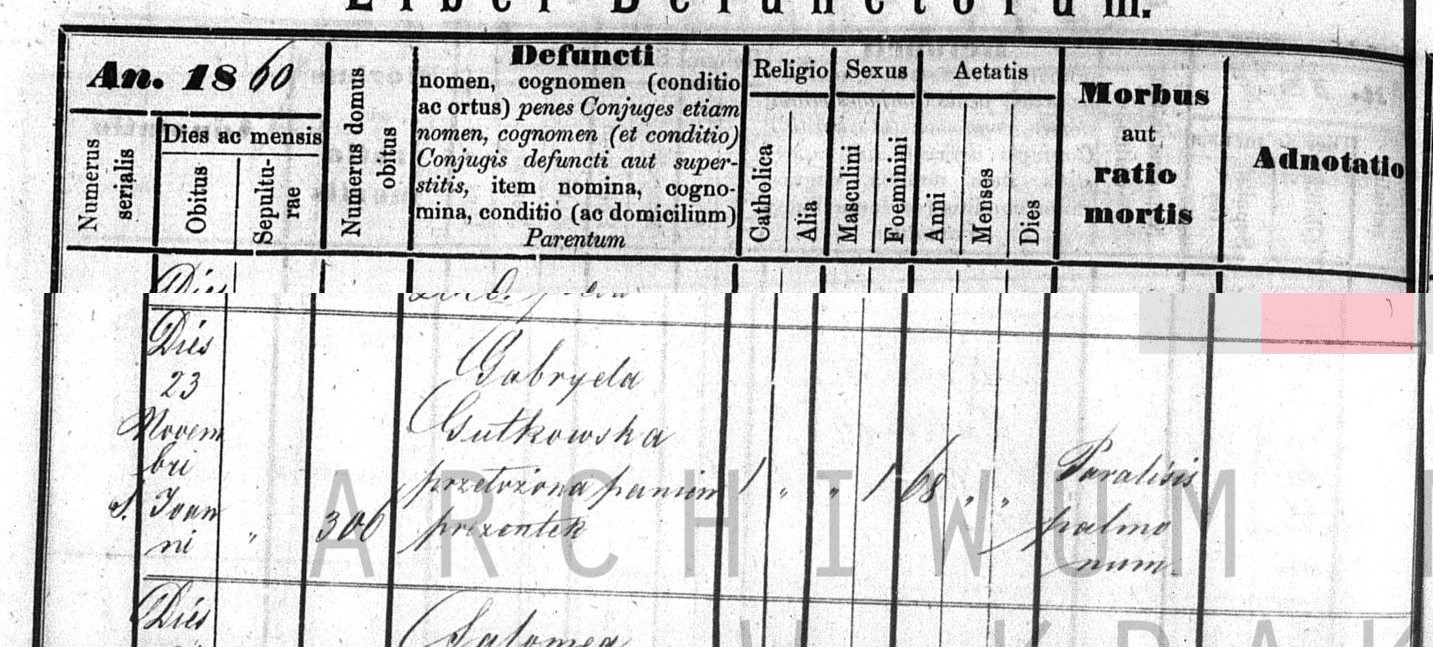 Liber Defunctorum.
An. 1860
Numerus serialis
Dies ac mensis
Obitus
Sepultu-
rae
Numerus domus
obitus
Defuncti
nomen, cognomen (conditio
ac ortus) penes Conjuges etiam
nomen, cognomen (et conditio)
Conjugis defuncti aut super-
stitis, item nomina, cogno-
mina, conditio (ac domicilium)
Parentum
Religio
Catholica
Alia
Sexus
Masculini
Foeminini
Aetatis
Anni
Menses
Dies
Morbus
aut
ratio
mortis
Adnotatio
Dies
Dies
23
Novem
bri
S. Joan
ni
"
306
Gabryela
Gutkowska
przełożona panien
prezentek
1 " " 1 68 " "
Paralisis
pulmo
num
Dies
Salomea
ARCHIWUM
W KRAK